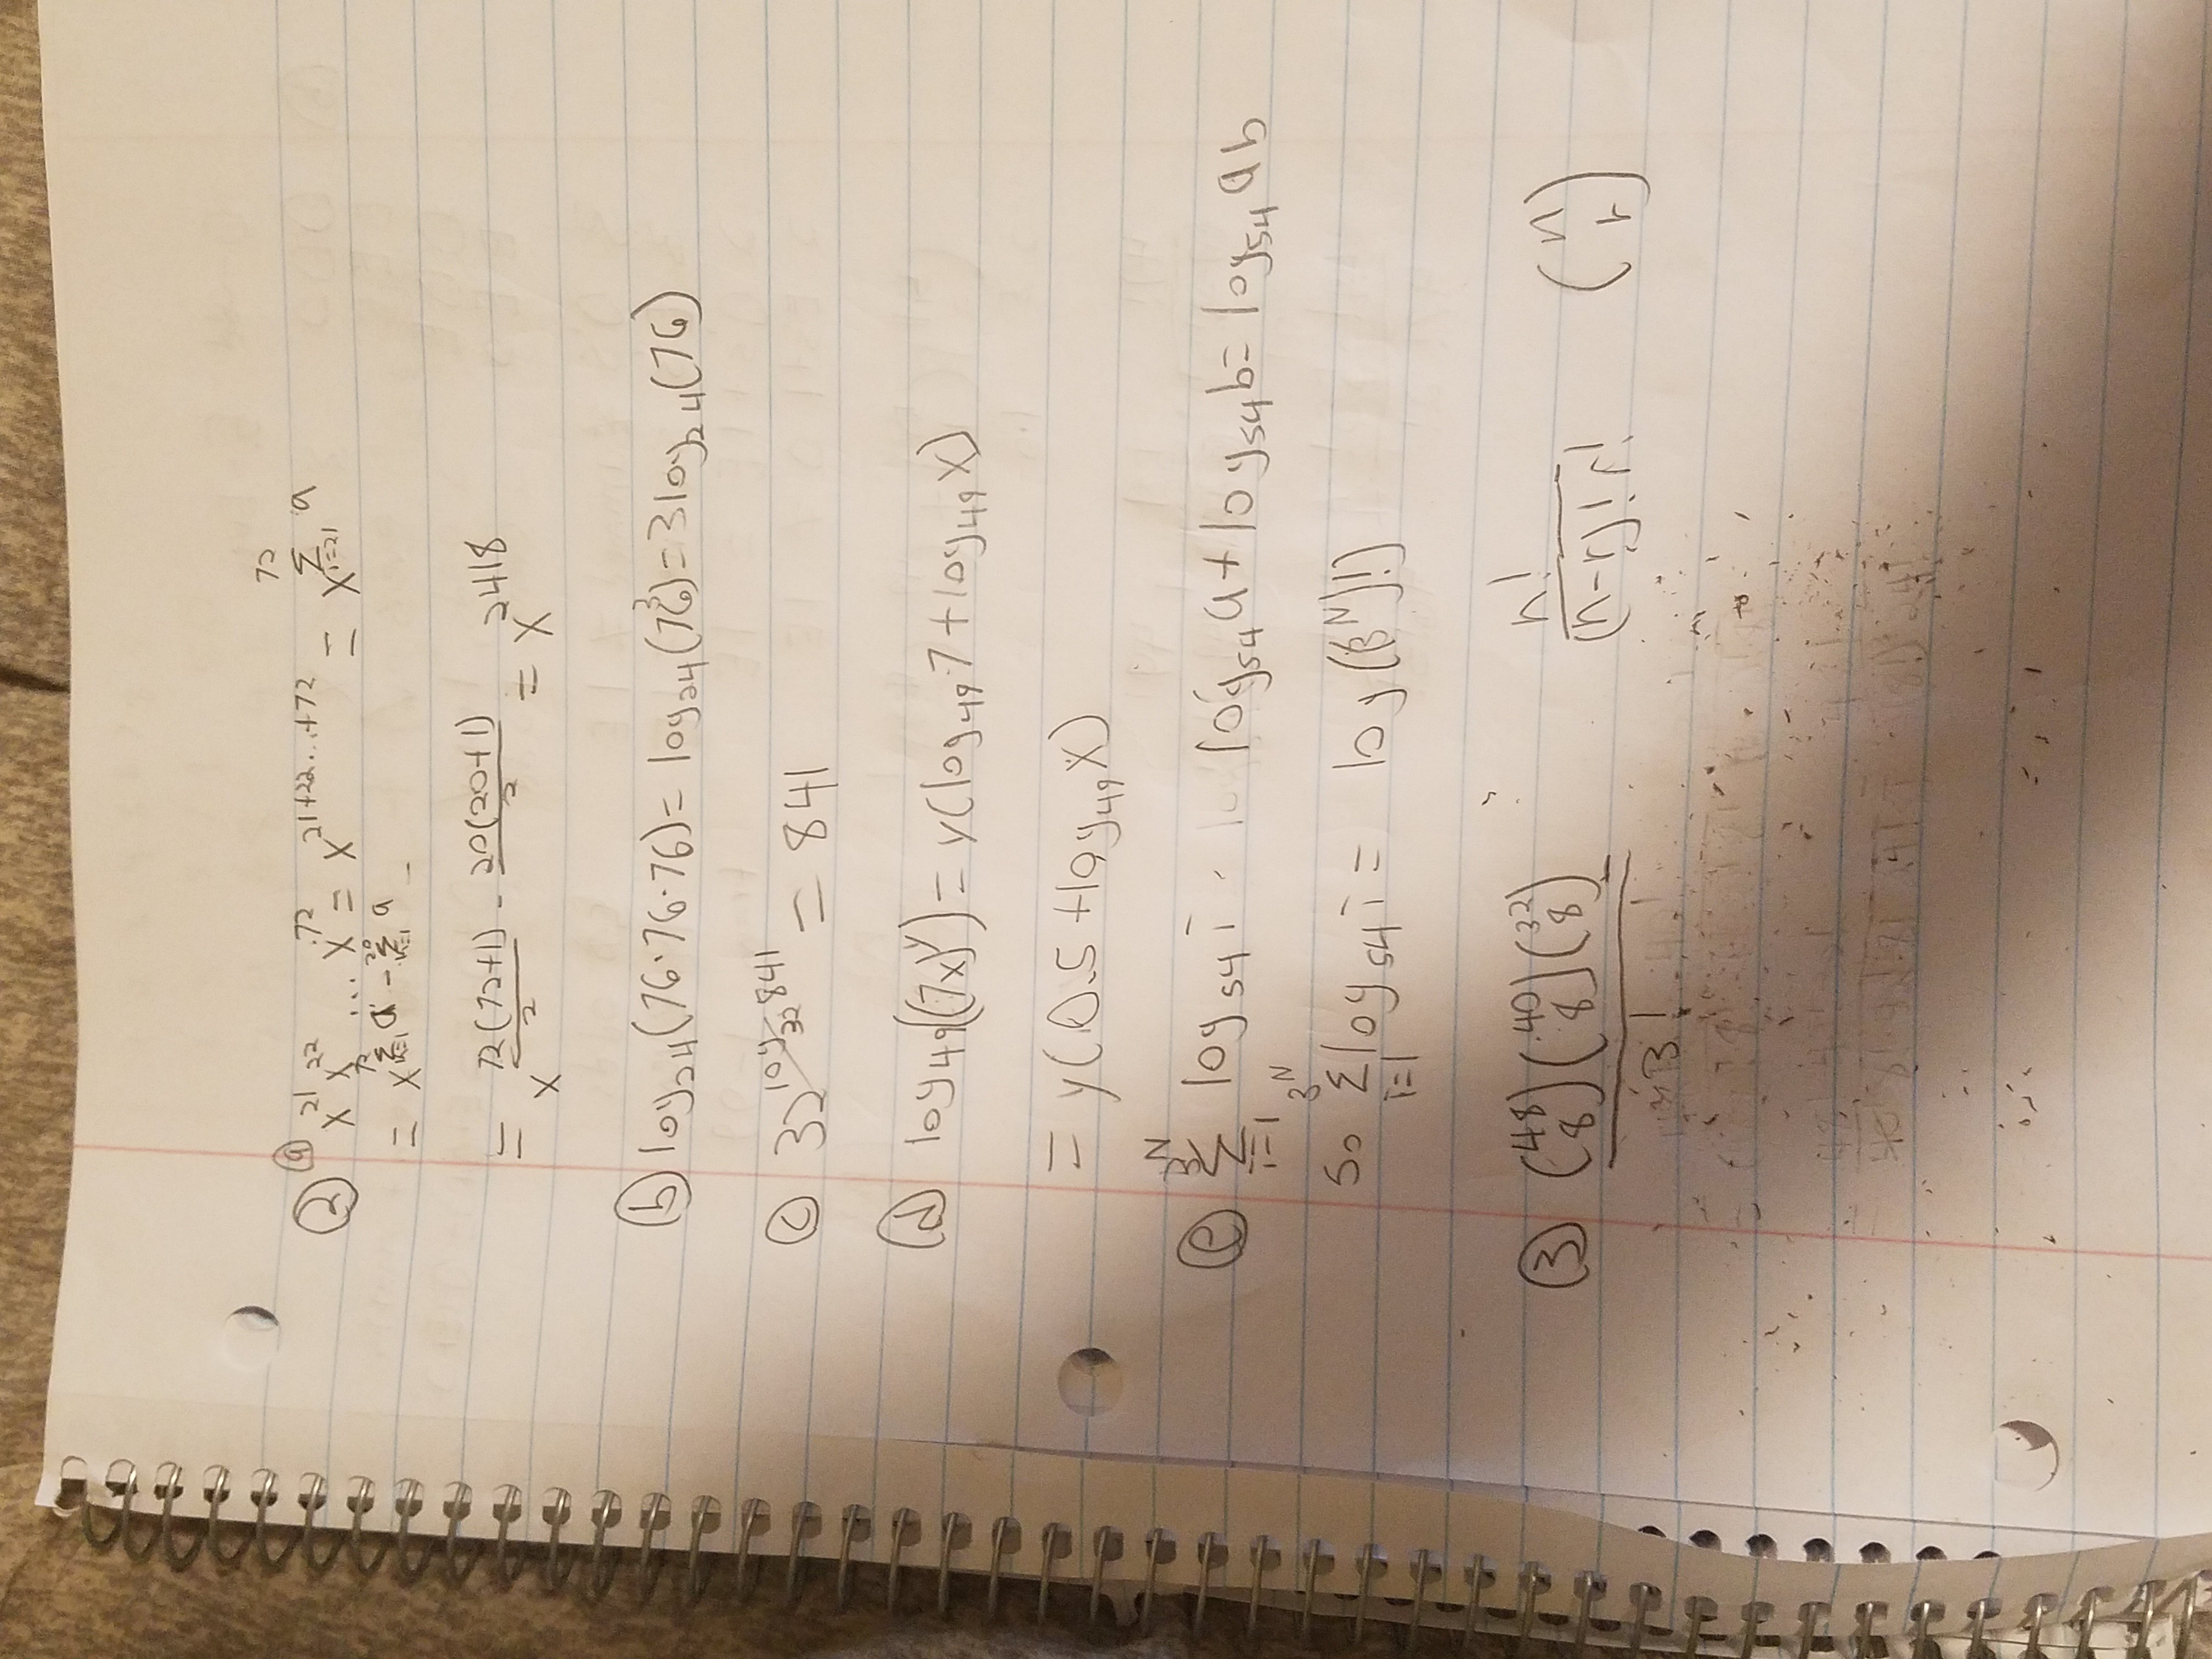 ② ⓐ x^21 x^22 ... x^72 = x^(21+22...+72) = x^(∑_{i=21}^{72} a)
= x^(∑_{i=1}^{72} a - ∑_{i=1}^{20} a) -
= x^(72(72+1)/2 - 20(20+1)/2) = x^2418
ⓑ log_24(76·76·76) = log_24(76^3) = 3log_24(76)
ⓒ 32^(log_32 841) = 841
ⓓ log_49((7x)^y) = y(log_49 7 + log_49 x)
= y(0.5 + log_49 x)
ⓔ ∑_{i=1}^{3^N} log_54 i log_54 a + log_54 b = log_54 ab
So ∑_{i=1}^{3^N} log_54 i = log((3^N)!)
③ (48 8)(40 8)(32 8) / 3! n! / (n-r)! r! (n r)